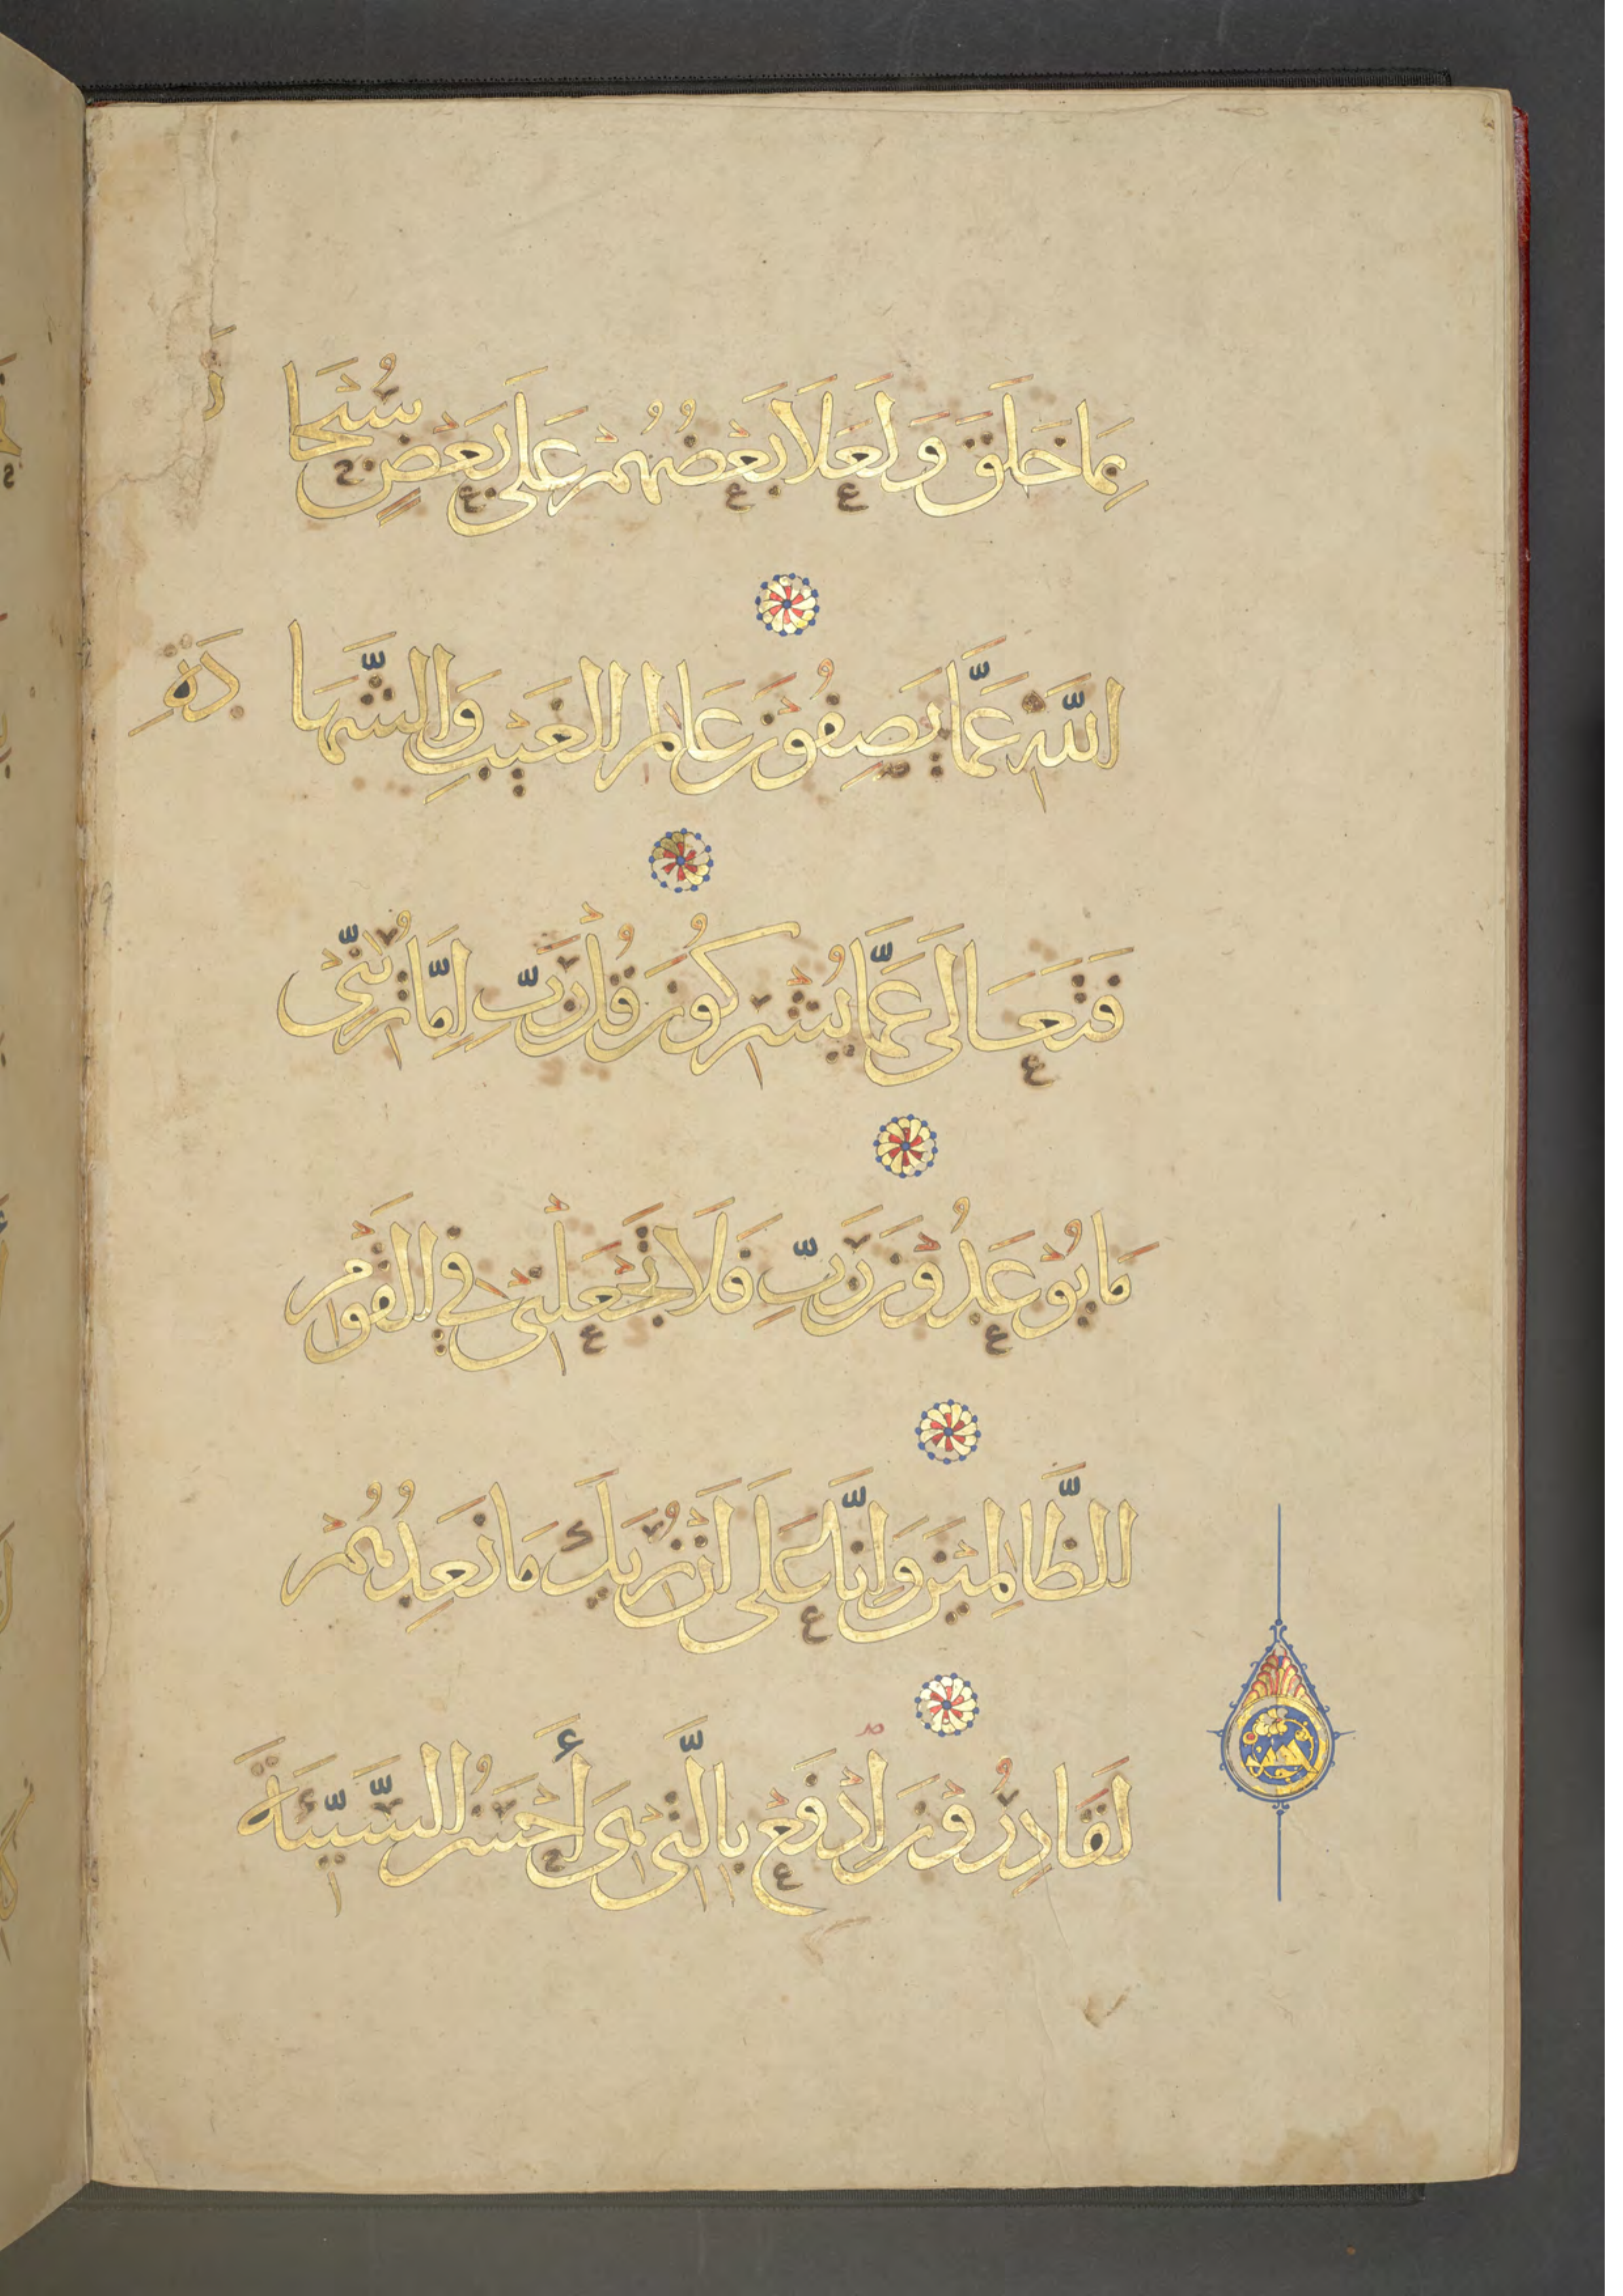 بِمَا خَلَقَ وَلَعَلَا بَعْضُهُمْ عَلَى بَعْضٍ سُبْحَا نَ
اللَّهِ عَمَّا يَصِفُونَ عَالِمِ الْغَيْبِ وَالشَّهَا دَةِ
فَتَعَالَى عَمَّا يُشْرِكُونَ قُلْ رَبِّ إِمَّا تُرِيَنِّي
مَا يُوعَدُونَ رَبِّ فَلَا تَجْعَلْنِي فِي الْقَوْمِ
الظَّالِمِينَ وَإِنَّا عَلَى أَنْ نُرِيَكَ مَا نَعِدُهُمْ
لَقَادِرُونَ ادْفَعْ بِالَّتِي هِيَ أَحْسَنُ السَّيِّئَةَ